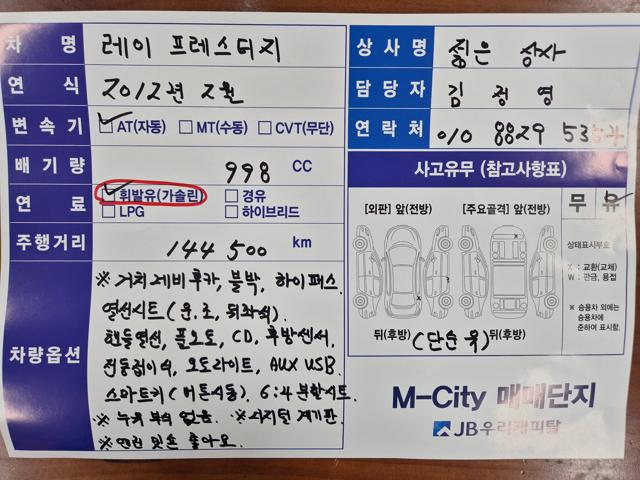 차 명 레이 프레스티지
연 식 2012년 2월
변 속 기 AT(자동) MT(수동) CVT(무단)
배 기 량 998 CC
연 료 휘발유(가솔린) 경유
LPG 하이브리드
주행거리 144500 km
차량옵션
※ 거치제비후카, 블박, 하이패스,
열선시트(운,조,뒤좌석),
핸들열선, 풀오토, CD, 후방센서,
전동접이식, 오토라이트, AUX USB,
스마트키(버튼시동), 6:4 분할시트.
※ 누유 부식 없음. ※ 디지털 계기판.
※ 엔진 밋숀 좋아요.
상 사 명 젊은 상사
담 당 자 김 정 영
연 락 처 010 8829 53
사고유무 (참고사항표)
[외판] 앞(전방) [주요골격] 앞(전방)
무 유
상태표시부호
X : 교환(교체)
W : 판금, 용접
※ 승용차 외에는
승용차에
준하여 표시함.
X
뒤(후방) (단순 유) 뒤(후방)
M-City 매매단지
JB우리캐피탈